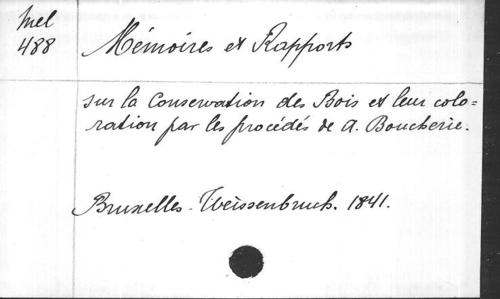 Mel
488
Mémoires et Rapports
sur la Conservation des Bois et leur colo=
ration par les procédés de A. Boucherie.
Bruxelles - Weissenbruch. 1841.